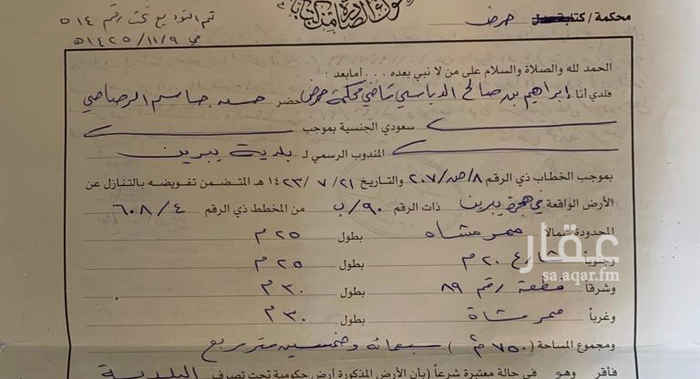 محكمة / كتابة عدل حرض
تم التوديع تحت رقم ٥١٤
في ١٤٢٥/١١/٩ هـ
الحمد لله والصلاة والسلام على من لا نبي بعده . . . أما بعد :
فلدي أنا إبراهيم بن صالح قاضي محكمة حرض حضر جاسم
سعودي الجنسية بموجب
المندوب الرسمي لـ بلدية يبرين
بموجب الخطاب ذي الرقم ٨/صد/٢٠٧ والتاريخ ١٤٢٣/٧/٢١ هـ المتضمن تفويضه بالتنازل عن
الأرض الواقعة في هجرة يبرين ذات الرقم ٩٠/ب من المخطط ذي الرقم ٦٠٨/٤
المحدودة شمالاً ممر مشاه بطول ٢٥ م
وجنوباً شارع ٢٠ م بطول ٢٥ م
وشرقاً قطعة رقم ٨٩ بطول ٣٠ م
وغرباً ممر مشاة بطول ٣٠ م
ومجموع المساحة ( ٧٥٠ م ) سبعمائة وخمسين متر مربع
فأقر وهو في حالة معتبرة شرعاً ( بأن الأرض المذكورة أرض حكومية تحت تصرف البلدية
عقار
sa.aqar.fm